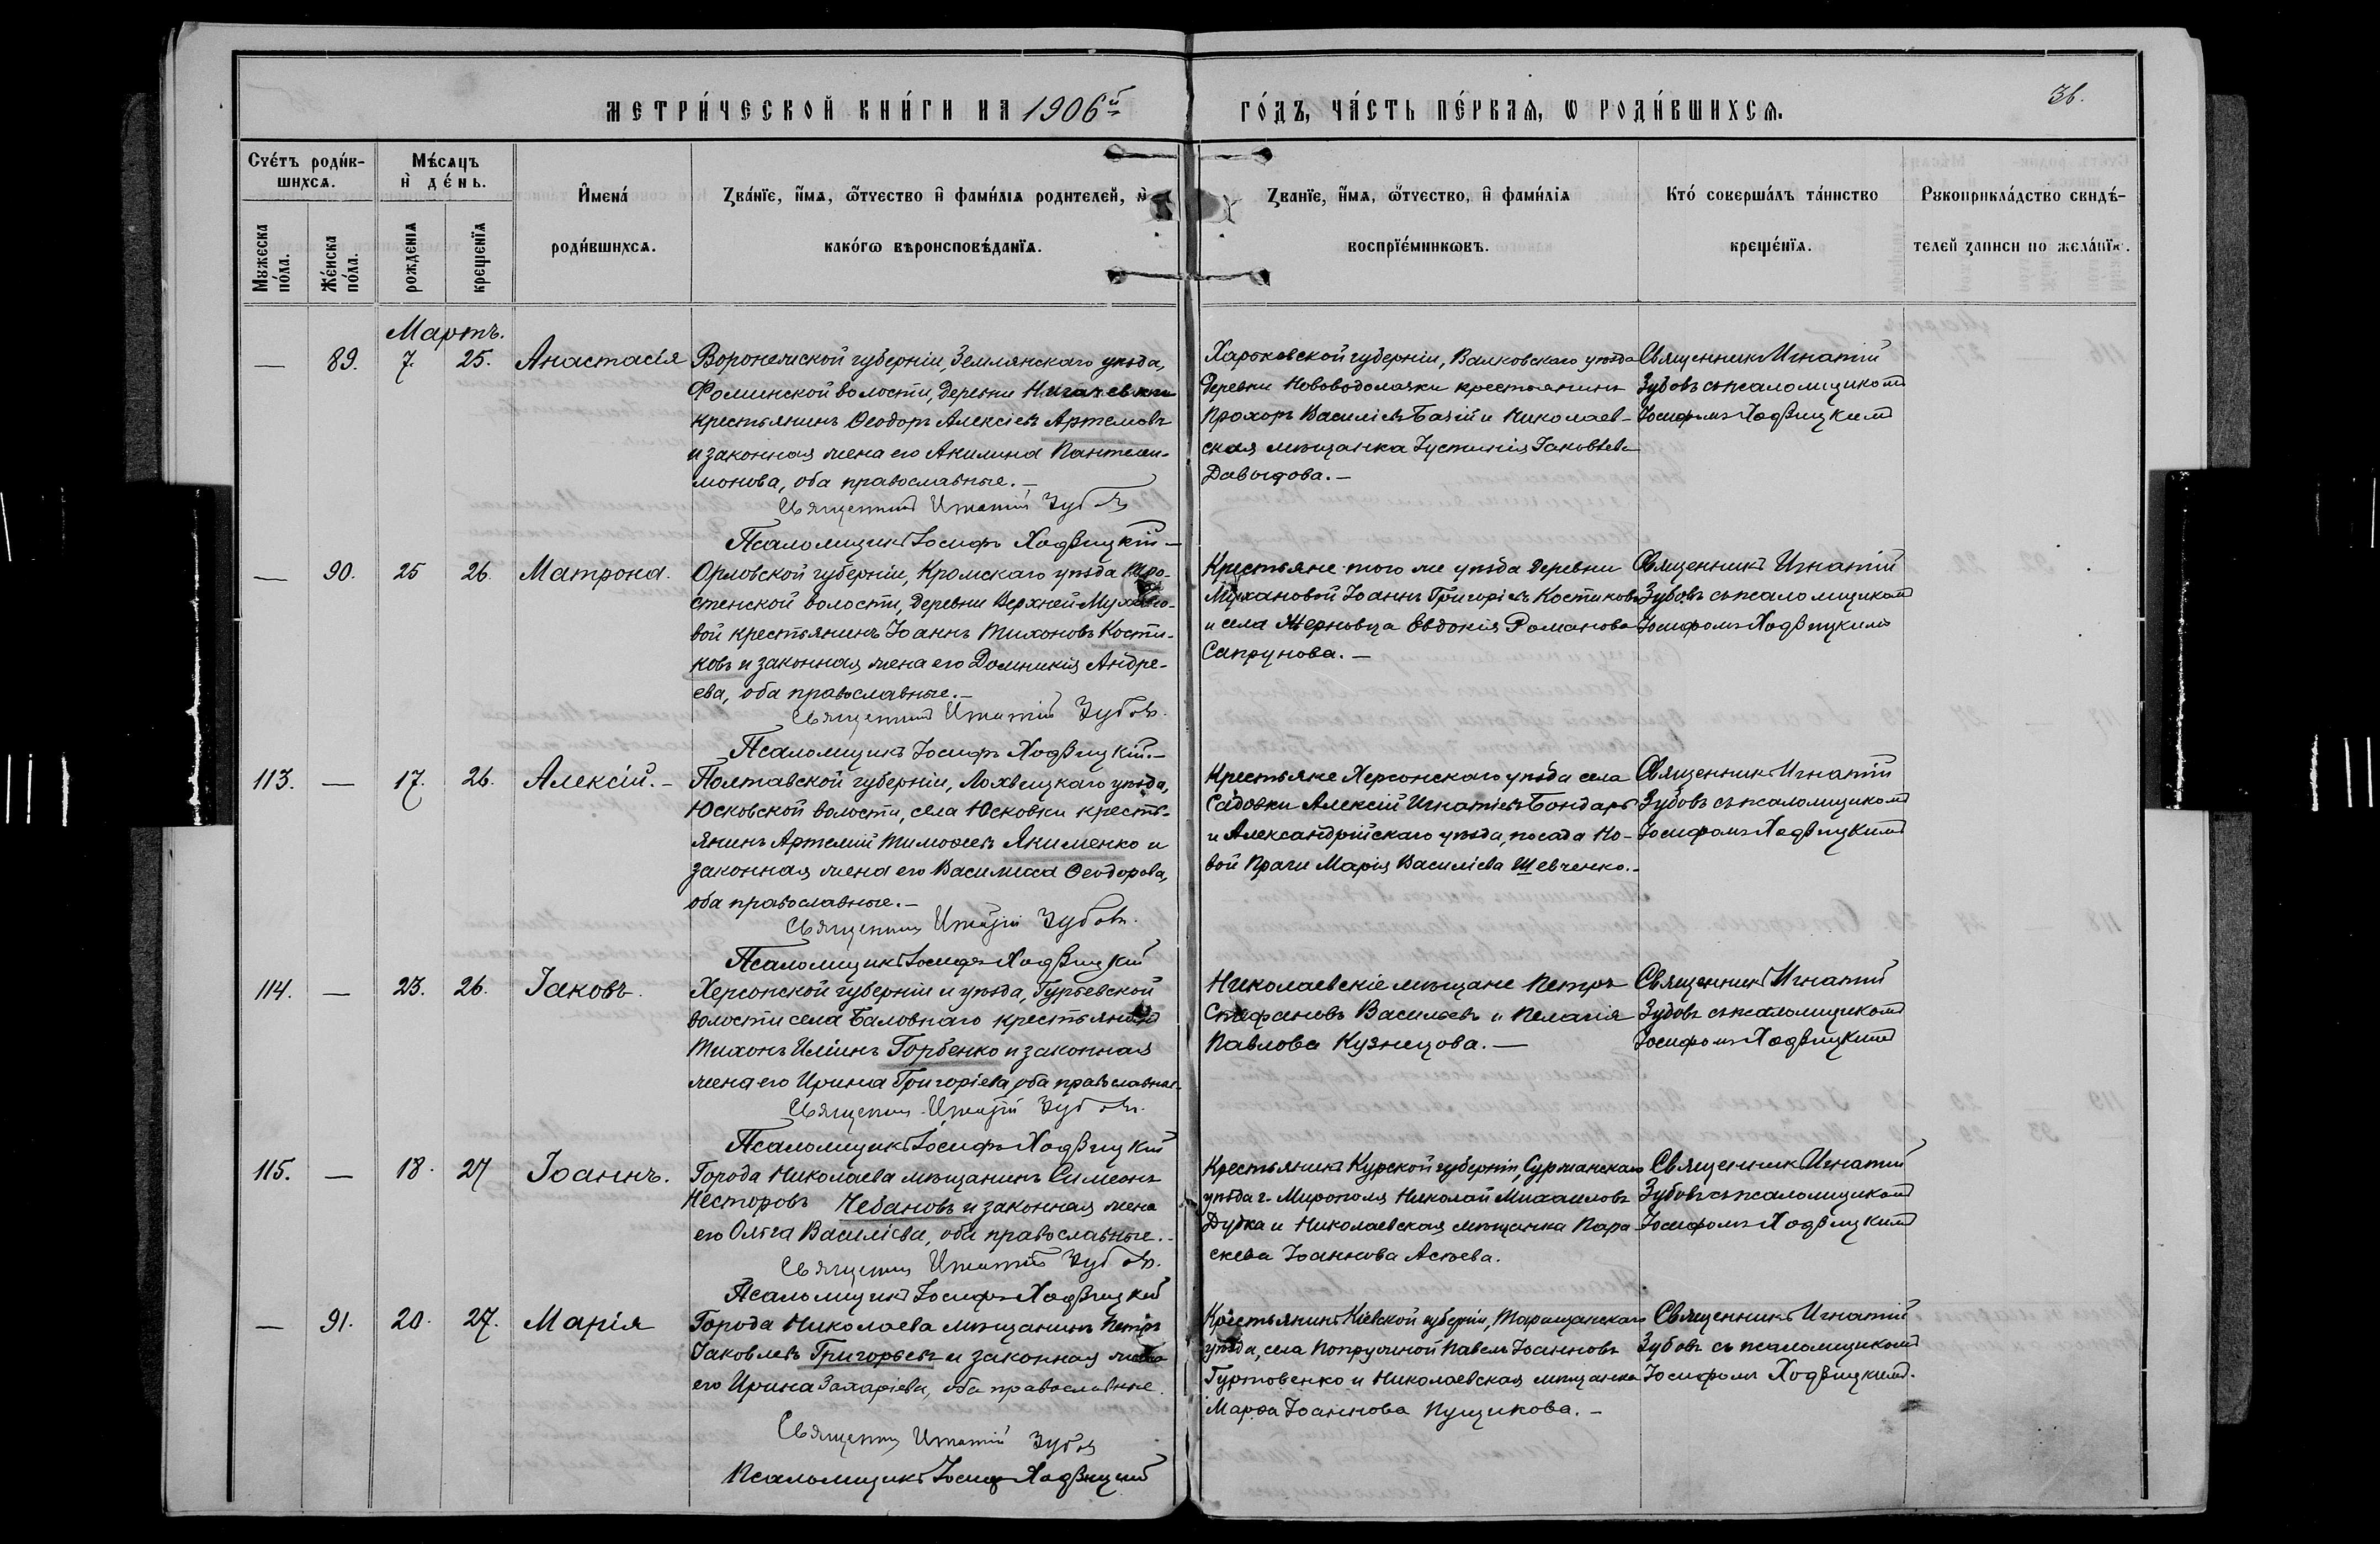 МЕТРИ́ЧЕСКОЙ КНИ́ГИ НА 1906й
ГО́ДЪ, ЧА́СТЬ ПЕ́РВАѦ, Ѡ РОДИ́ВШИХСѦ.
36.
Сче́тъ роди́в-
шихсѧ.
Мѣ́сѧцъ
и҆ де́нь.
И҆мена́
роди́вшихсѧ.
Зва́нїе, и҆́мѧ, ѻ҆́тчество и҆ фами́лїѧ родителей, и҆
како́гѡ вѣроисповѣ́данїѧ.
Званїе, и҆́мѧ, ѻ҆́тчество, и҆ фами́лїѧ
воспрїе́мникѡвъ.
Кто́ соверша́лъ та́инство
креще́нїѧ.
Рꙋкоприкла́дство свидѣ́-
телей записи по жела́нїю.
Мꙋжеска
по́ла.
Же́нска
по́ла.
рожденїѧ
крещенїѧ
Мартъ.
— 89. 7. 25. Анастасія
Воронежской губерніи, Землянскаго уѣзда,
Фоминской волости, деревни
крестьянинъ Ѳеодоръ Алексіевъ Артемовъ
и законная жена его Акилина Пантелеи-
монова, оба православные.—
Священникъ Игнатій Зубовъ
Псаломщикъ Іосифъ Ходвицкій—
Харьковской губерніи, Валковскаго уѣзда
деревни Нововодолажки крестьянинъ
Прохоръ Василіевъ Бачій и Николаев-
ская мѣщанка Іустинія Іаковлева
Давыдова.—
Священникъ Игнатій
Зубовъ съ псаломщикомъ
Іосифомъ Ходвицкимъ
— 90. 25 26. Матрона.
Орловской губерніи, Кромскаго уѣзда Коро-
стенской волости, деревни Верхней Мухано-
вой крестьянинъ Іоаннъ Тихоновъ Кости-
ковъ и законная жена его Домникія Андре-
ева, оба православные.—
Священникъ Игнатій Зубовъ.
Псаломщикъ Іосифъ Ходвицкій.—
Крестьяне того же уѣзда деревни
Мухановой Іоаннъ Григоріевъ Костиковъ
и села Жерновца Евдокія Романова
Сапрунова.—
Священникъ Игнатій
Зубовъ съ псаломщикомъ
Іосифомъ Ходвицкимъ
113. — 17. 26. Алексій.—
Полтавской губерніи, Лохвицкаго уѣзда,
Юсковской волости, села Юсковки кресть-
янинъ Артемій Тимоѳеевъ Якименко и
законная жена его Василиса Ѳеодорова,
оба православные.—
Священникъ Игнатій Зубовъ.
Псаломщикъ Іосифъ Ходвицкій
Крестьяне Херсонскаго уѣзда села
Садовки Алексій Игнатіевъ Бондарь
и Александрійскаго уѣзда, посада Но-
вой Праги Марія Василіева Шевченко.—
Священникъ Игнатій
Зубовъ съ псаломщикомъ
Іосифомъ Ходвицкимъ
114. — 23. 26. Іаковъ.
Херсонской губерніи и уѣзда, Гурьевской
волости села Баловнаго крестьянинъ
Тихонъ Иліинъ Горбенко и законная
жена его Ирина Григоріева, оба православные.
Священникъ Игнатій Зубовъ.
Псаломщикъ Іосифъ Ходвицкій
Николаевскіе мѣщане Петръ
Стефановъ Васильевъ и Пелагія
Павлова Кузнецова.—
Священникъ Игнатій
Зубовъ съ псаломщикомъ
Іосифомъ Ходвицкимъ
115. — 18. 27 Іоаннъ.
Города Николаева мѣщанинъ Симеонъ
Несторовъ Чебановъ и законная жена
его Ольга Василіева, оба православные.—
Священникъ Игнатій Зубовъ.
Псаломщикъ Іосифъ Ходвицкій
Крестьянинъ Курской губерніи, Суржанскаго
уѣзда г. Мирополя Николай Михаиловъ
Дудка и Николаевская мѣщанка Пара
скева Іоаннова Асѣева.
Священникъ Игнатій
Зубовъ съ псаломщикомъ
Іосифомъ Ходвицкимъ
— 91. 20. 27. Марія
Города Николаева мѣщанинъ Петръ
Іаковлевъ Григорьевъ и законная жена
его Ирина Захаріева, оба православные.
Священникъ Игнатій Зубовъ
Псаломщикъ Іосифъ Ходвицкій
Крестьянинъ Кіевской губерніи, Таращанскаго
уѣзда, села Попружной Павелъ Іоанновъ
Гуртовенко и Николаевская мѣщанка
Марѳа Іоаннова Пущикова.—
Священникъ Игнатій
Зубовъ съ псаломщикомъ
Іосифомъ Ходвицкимъ.